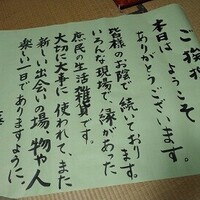 ご挨拶
本日は ようこそ
ありがとうございます。
皆様のお陰で続いております。
いろんな現場で、縁があった
庶民の生活雑貨です。
大切に大事に使われて、また
新しい出会いの場、物や人
楽しい一日でありますように、